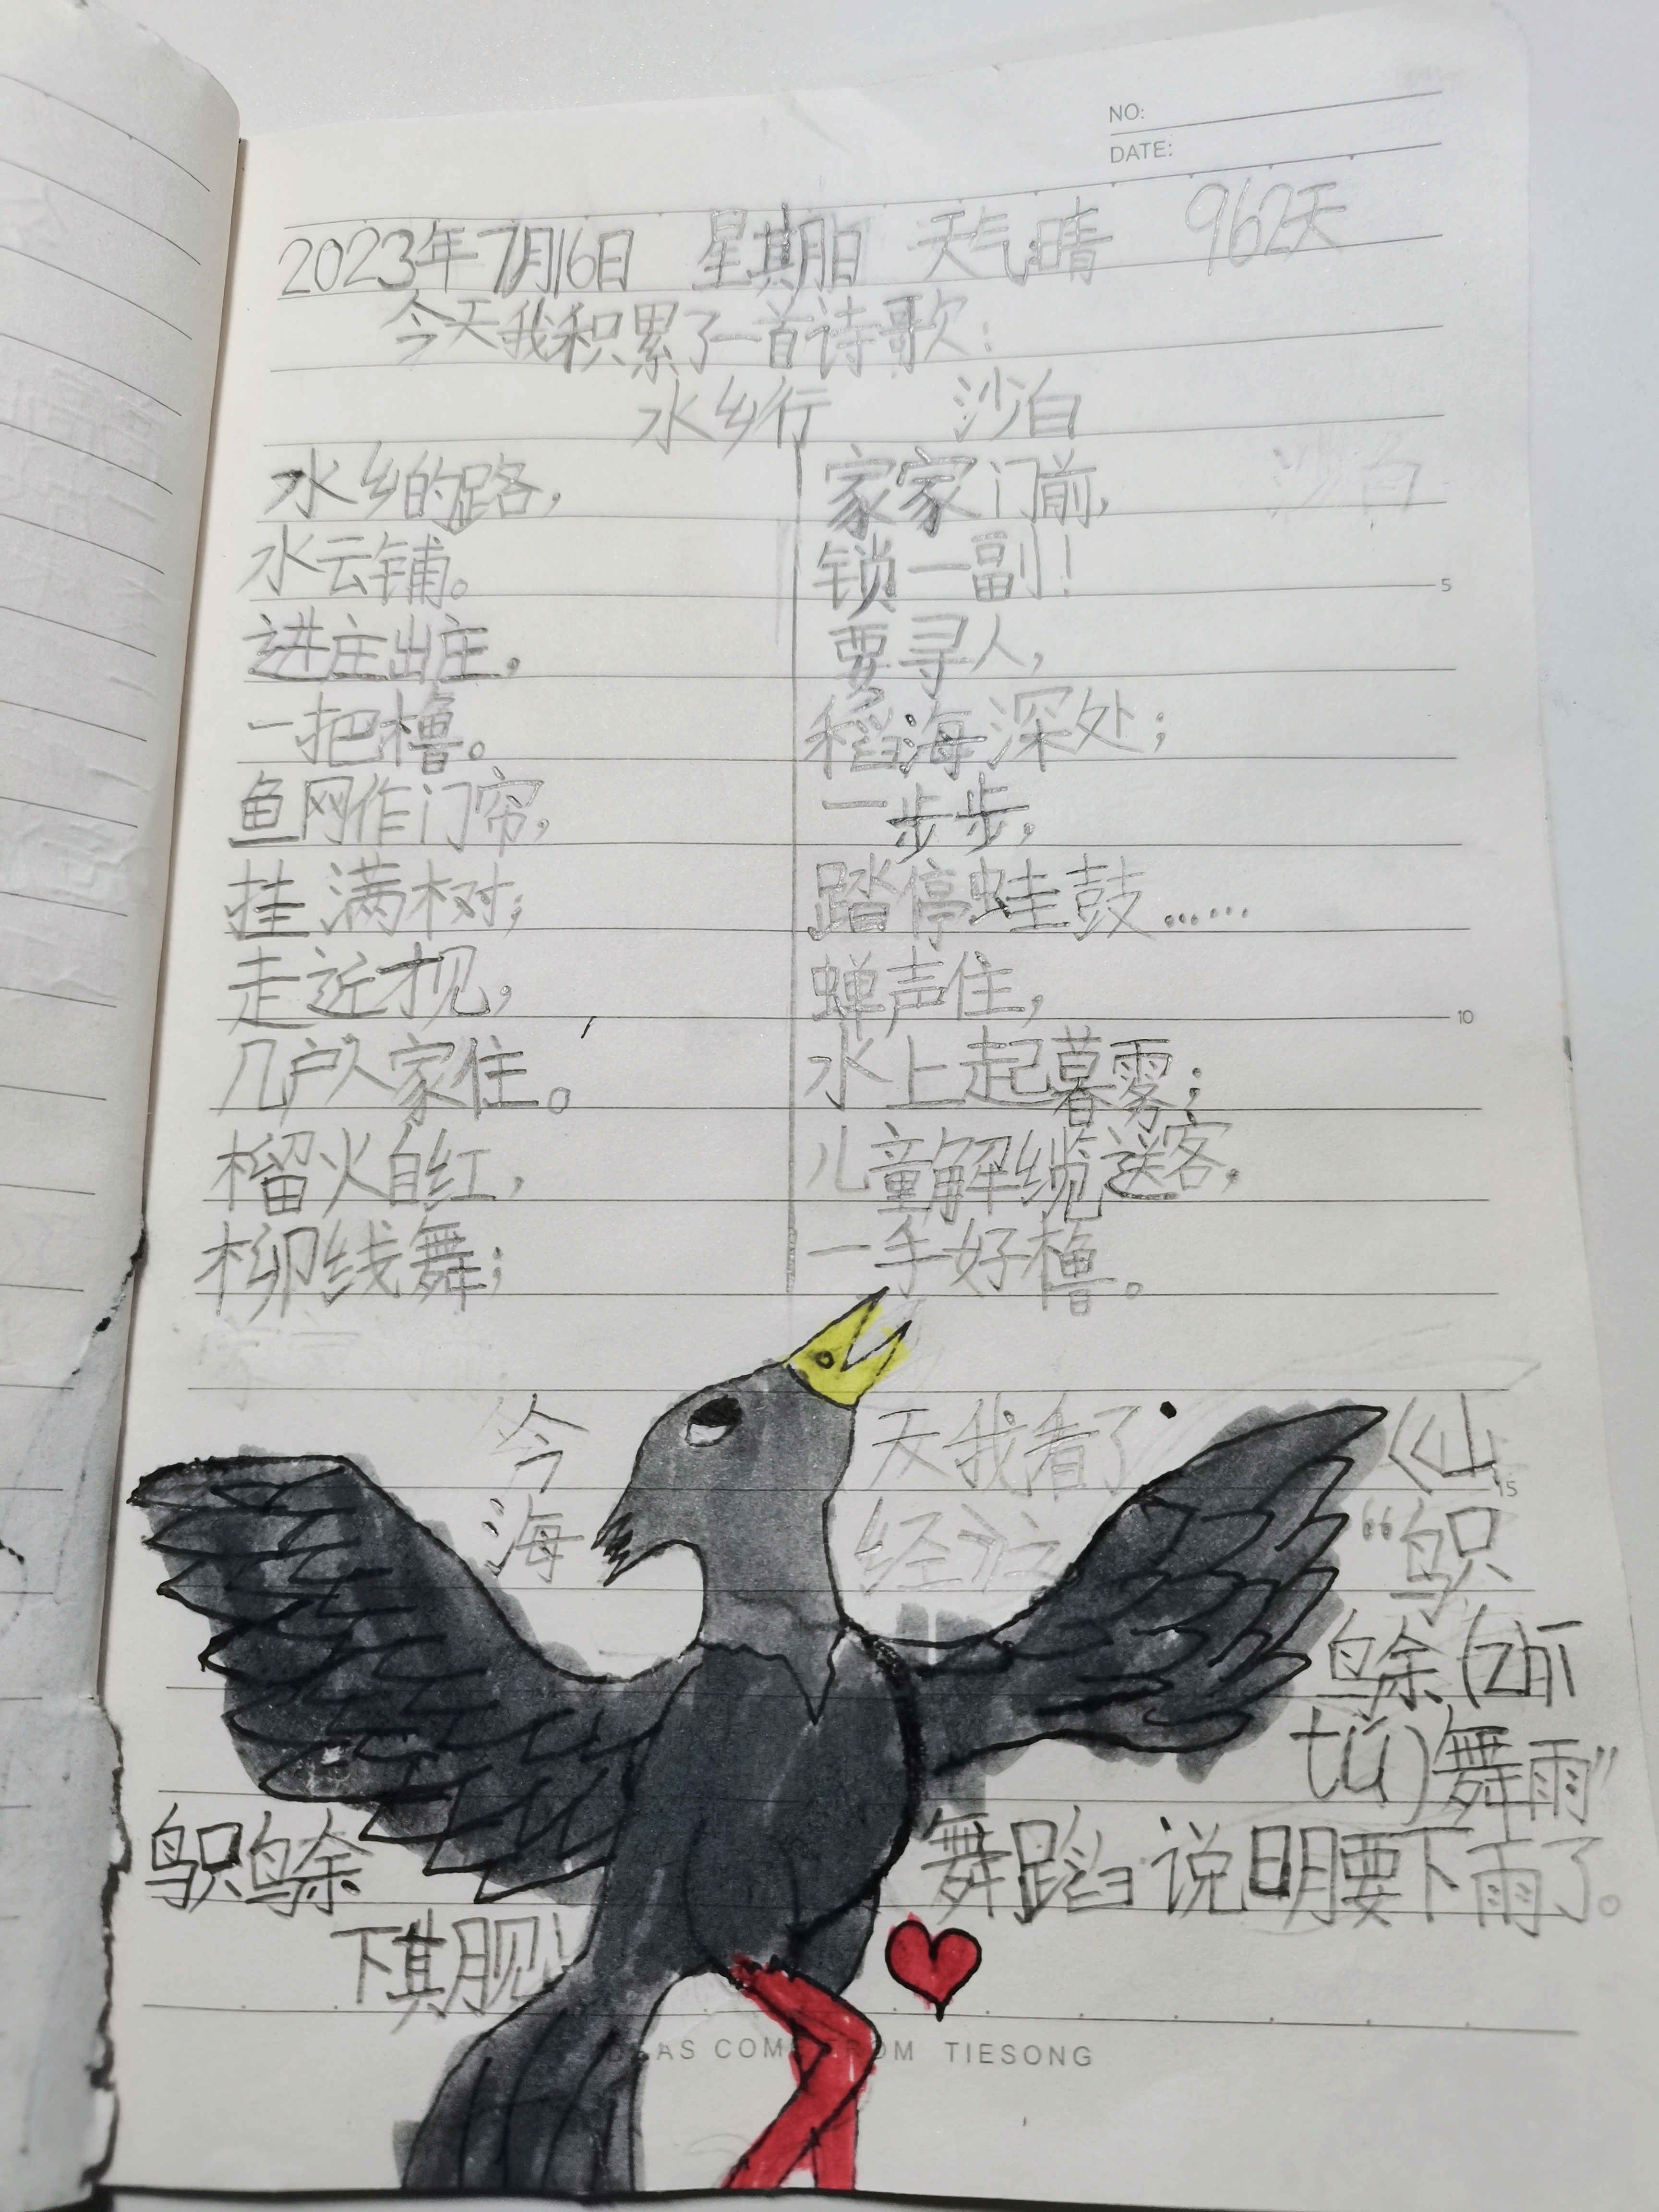 NO:
DATE:
2023年7月16日 星期日 天气:晴 962天
今天我积累了一首诗歌:
水乡行 沙白
水乡的路,
水云铺。
进庄出庄,
一把橹。
鱼网作门帘,
挂满树;
走近才见,
几户人家住。
榴火自红,
柳线舞;
家家门前,
锁一副!
要寻人,
稻海深处;
一步步,
踏停蛙鼓……
蝉声住,
水上起暮雾;
儿童解缆送客,
一手好橹。
沙白
5
10
15
今天我看了《山
海经》之“鸮
鵌(zhī
tú)舞雨”
鸮鵌舞蹈说明要下雨了。
下期见!
AS COM OM TIESONG